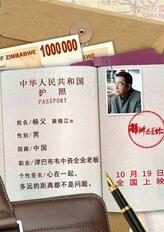 OF ZIMBABWE
1000000
中华人民共和国
护照
PASSPORT
姓名/杨父 黄锦江饰
性别/男
国籍/中国
职业/津巴布韦中资企业老板
个性签名/心在一起,
多远的距离都不是问题。
10月19日
全国上映